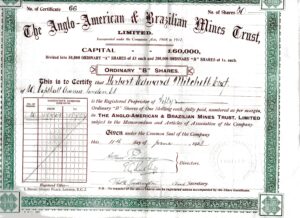 No. of Certificate 66
No. of Shares 50
The Anglo-American & Brazilian Mines Trust,
LIMITED.
Incorporated under the Companies Acts, 1908 to 1917.
CAPITAL £60,000,
Divided into 50,000 ORDINARY "A" SHARES of £1 each and 200,000 ORDINARY "B" SHARES of 1s. each.
ORDINARY "B" SHARES.
This is to Certify that Herbert Edward Mitchell Esq
of
is the Registered Proprietor of Fifty
Ordinary "B" Shares of One shilling each, fully paid, numbered as per margin, in
THE ANGLO-AMERICAN & BRAZILIAN MINES TRUST, LIMITED
subject to the Memorandum and Articles of Association of the Company.
Given under the Common Seal of the Company
this 11th day of June
Secretary